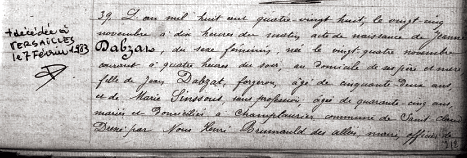 + décédée à
VERSAILLES
le 7 Février 1983
39. L'an mil huit cent quatre-vingt huit, le vingt cinq
novembre à dix heures du matin, acte de naissance de Jeanne
Dabzat, du sexe féminin, née le vingt quatre novembre
courant à quatre heures du soir, au domicile de ses père et mère
fille de Jean Dabzat, forgeron, âgé de cinquante deux ans,
et de Marie Sinsous, sans profession, âgée de quarante cinq ans,
mariés et domiciliés à commune de Saint
Dressé par Nous Henri maire, officier de